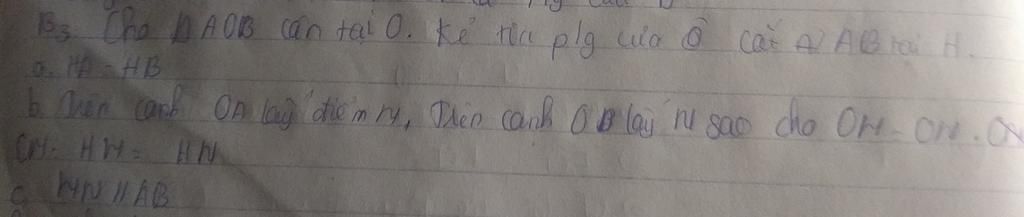 B3. Cho Δ AOB cân tại O. Kẻ tia p/g của Ô cắt AB tại H.
a. HA = HB
b. Trên cạnh OA lấy điểm M, Trên cạnh OB lấy N sao cho OM = ON.
CM: HM = HN
c. MN // AB